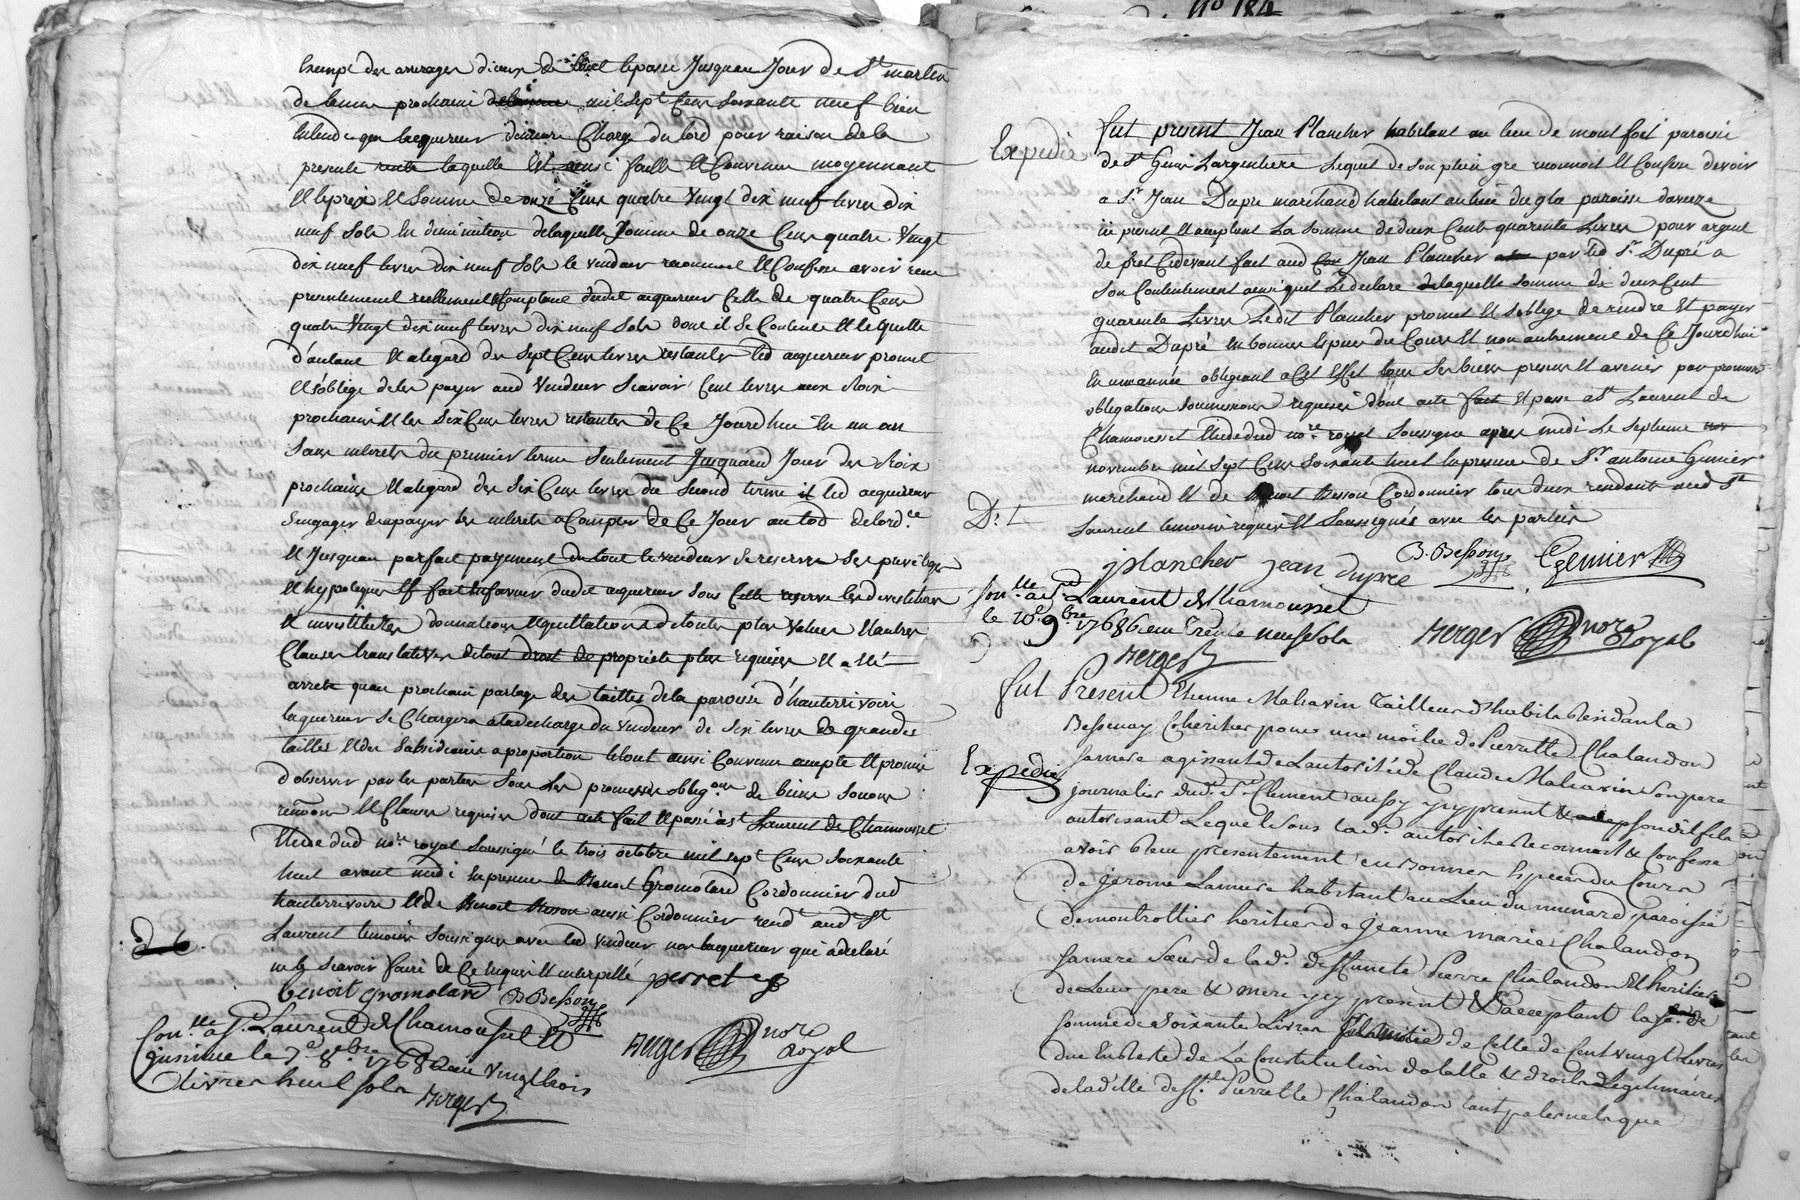 exempt des arrerages d'iceux de tout le passe Jusqu'au Jour de St martin
de l'année prochaine mil sept Cens soixante neuf bien
entendu que lacquereur demeure Chargé du lod pour raison de la
presente vente laquelle Est ainsi faitte et Convenue moyennant
et le prix et somme de onze Cens quatre vingt dix neuf livres dix
neuf sols En diminution de laquelle somme de onze Cens quatre vingt
dix neuf livres dix neuf sols le vendeur reconnoit et Confesse avoir receu
presentement reellement et Comptant dudit acquereur Celle de quatre Cens
quatre vingt dix neuf livres dix neuf sols dont il se Contente et le quitte
d'autant et alegard des sept Cens livres restantes led acquereur promet
et s'oblige de les payer aud vendeur scavoir Cent livres aux Rois
prochain et les six Cens livres restantes de Ce Jourd'hui En un an
sans interets du premier terme seulement Jusqu'au Jour des Rois
prochains et alegard des six Cens livres du second terme led acquereur
s'engage de payer les interets a Compter de Ce Jour au tod de lord.ce
et Jusqu'au parfait payement du tout le vendeur se reserve ses privileges
et hypoteques et fait en faveur dudit acquereur sous Cette reserve les devestitures
et investitures donnations et quittations de toutes plus values et autres
Clauses translatives de tout droit de propriété plus requises et a eté
arreté qu'au prochain partage des tailles de la paroisse d'hauterivoire
lacquereur se Chargera a la decharge du vendeur de six livres de grandes
tailles et des subsidiaires a proportion le tout ainsi Convenu accepté et promis
d'observer par les parties sous les promesses oblig.ons de biens soumi
renon et Clauses requises dont acte fait et passé a St Laurent de Chamousset
Etude dud no.re royal soussigné le trois octobre mil sept Cens soixante
huit avant midi En presence de Benoit Gromolard Cordonnier dud
hauterrivoire et de Benoit Besson aussi Cordonnier resid.t aud St
Laurent temoins soussignes avec led vendeur non lacquereur qui a declaré
ne le scavoir faire de Ce Enquis et interpellé perret
benoit gromolard B Besson
Con.lle a St Laurent de Chamousset
le 7e 8bre 1768 Reçu vingt trois
livres huit sols Berger
Berger no.re Royal
No 184
Expedié
fut present Jean Plancher habitant au lieu de mont foit paroisse
de St Genis Largentiere Lequel de son plein gré reconnoit et Confesse devoir
a Sr Jean Dupré marchand habitant au lieu paroisse d'aveize
ici present et acceptant La somme de deux Cents quarente Livres pour argent
de pret Cidevant fait aud Jean Plancher par led Sr Dupré a
son Contentement ainsi quil Le declare de laquelle somme de deux Cent
quarente Livres Ledit Plancher promet et s'oblige de rendre et payer
audit Dupré en bonnes especes du Cours et non autrement de Ce Jourd'hui
En une année obligeant a Cet Effet tous ses biens presens et avenir par promesses
obligations soumissions requises dont acte fait et passé a St Laurent de
Chamousset Etude dud no.re royal soussigné apres midi Le septieme
novembre mil sept Cens soixante huit En presence de Sr antoine Gemier
marchand et de Benoit Besson Cordonnier tous deux residents aud St
Laurent temoins requis et soussignés avec les parties
D. L
jplancher jean dupré B. Besson Gemier
Con.lle a St Laurent de Chamousset
le 10e 9bre 1768 Reçu trente neuf sols Berger no.re Royal
Berger
fut Present Etienne Maliavin Tailleur d'habits Residant a
Bessenay Coheritier pour une moitié de Pierrette Chalandon
Expedié
sa mere agissant de Lautorité de Claude Malliavin son pere
journalier dud. St Clement aussy icy present son dit fils
autorisant Lequel sous lad. autorité Reconnoit & Confesse
avoir Reçu presentement en Bonnes Especes du Cours
de Jerome Lameire habitant au Lieu du munard paroisse
de montrottier heritier de Jeanne marie Chalandon
sa mere Soeur de lad. deffuncte Pierrette Chalandon Et heritiere
de Leur pere & mere icy present & acceptant la
somme de soixante Livres La moitié de celle de Cent vingt Livres
due En Reste de La Constitution dotalle & droits Legitimaires
de lad.ille deff.te Pierrette Chalandon tant paternels que